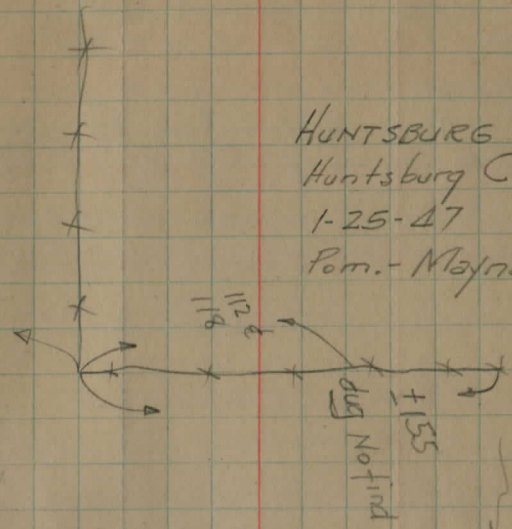 HUNTSBURG
Huntsburg C
1-25-47
Pom. - Mayn
118
dug No find
±155